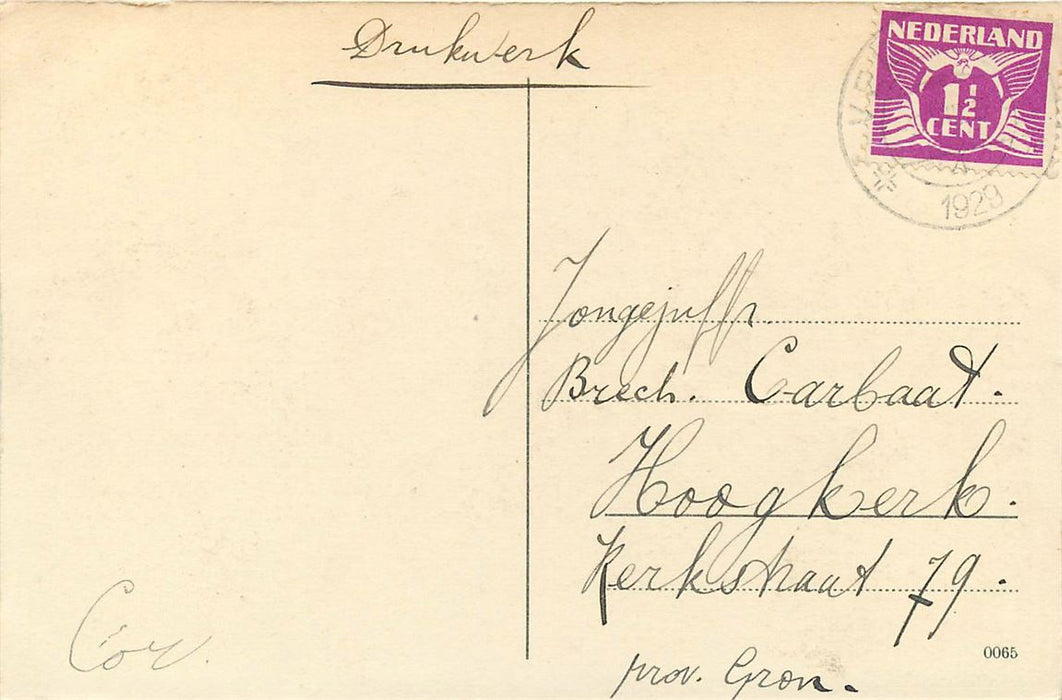 Drukwerk
NEDERLAND
1 1/2
CENT
1929
Jongejuffr.
Brech. Carbaat.
Hoogkerk.
Kerkstraat 79.
prov. Gron.
Cor.
0065